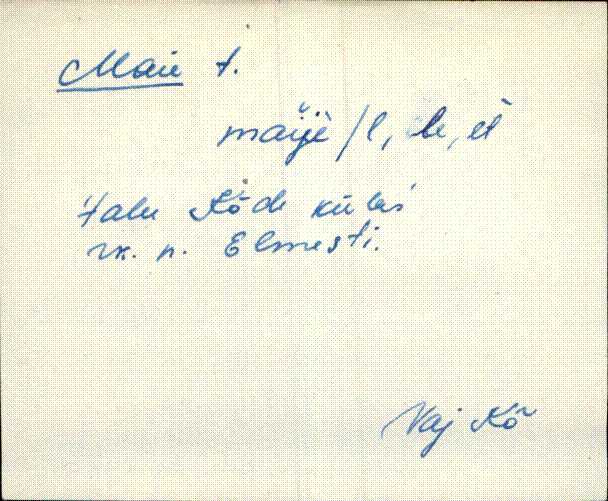 Maie t.
maijè /l, le, et
Talu Kõdu külas
vk. n. Elmesti.
Vaj Kõ